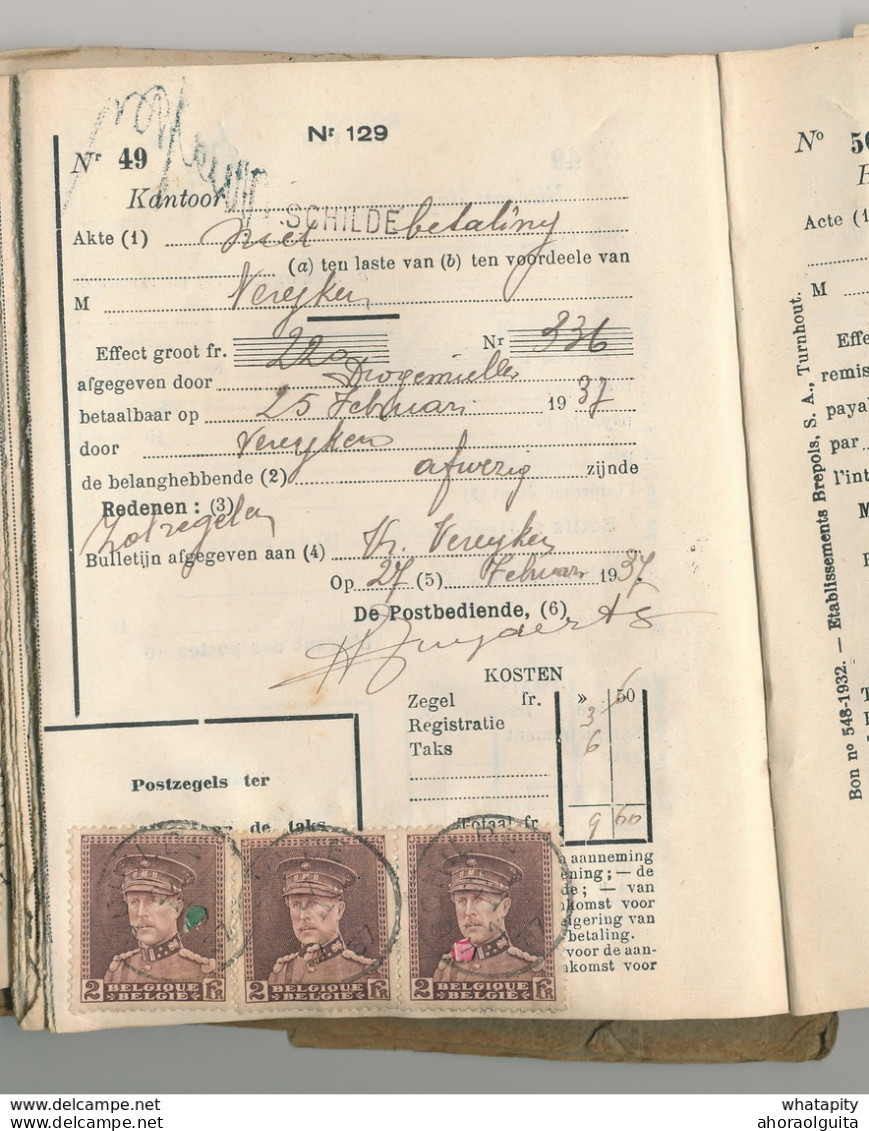 Nr 129
Nr 49
Kantoor SCHILDE
Akte (1) niet betaling
(a) ten laste van (b) ten voordeele van
M Vereyken
Effect groot fr. 220 Nr 336
afgegeven door
betaalbaar op 25 Februari 1937
door Vereyken
de belanghebbende (2) afwezig zijnde
Redenen : (3)
Bulletijn afgegeven aan (4) Vr. Vereyken
Op 27 (5) Februari 1937
De Postbediende, (6)
KOSTEN
Zegel fr. » 50
Registratie 3
Taks 6
Totaal fr. 9 60
Postzegels ter
de taks
aanneming
ening; — de
de; — van
komst voor
igering van
betaling.
voor de aan-
komst voor
2 BELGIQUE BELGIË FR
2 BELGIQUE BELGIË FR
2 BELGIQUE BELGIË FR
No 50
Acte (1
M
Effe
remis
payal
par
l'int
Bon no 548-1932. — Etablissements Brepols, S. A., Turnhout.
whatapity
ahoraolguita